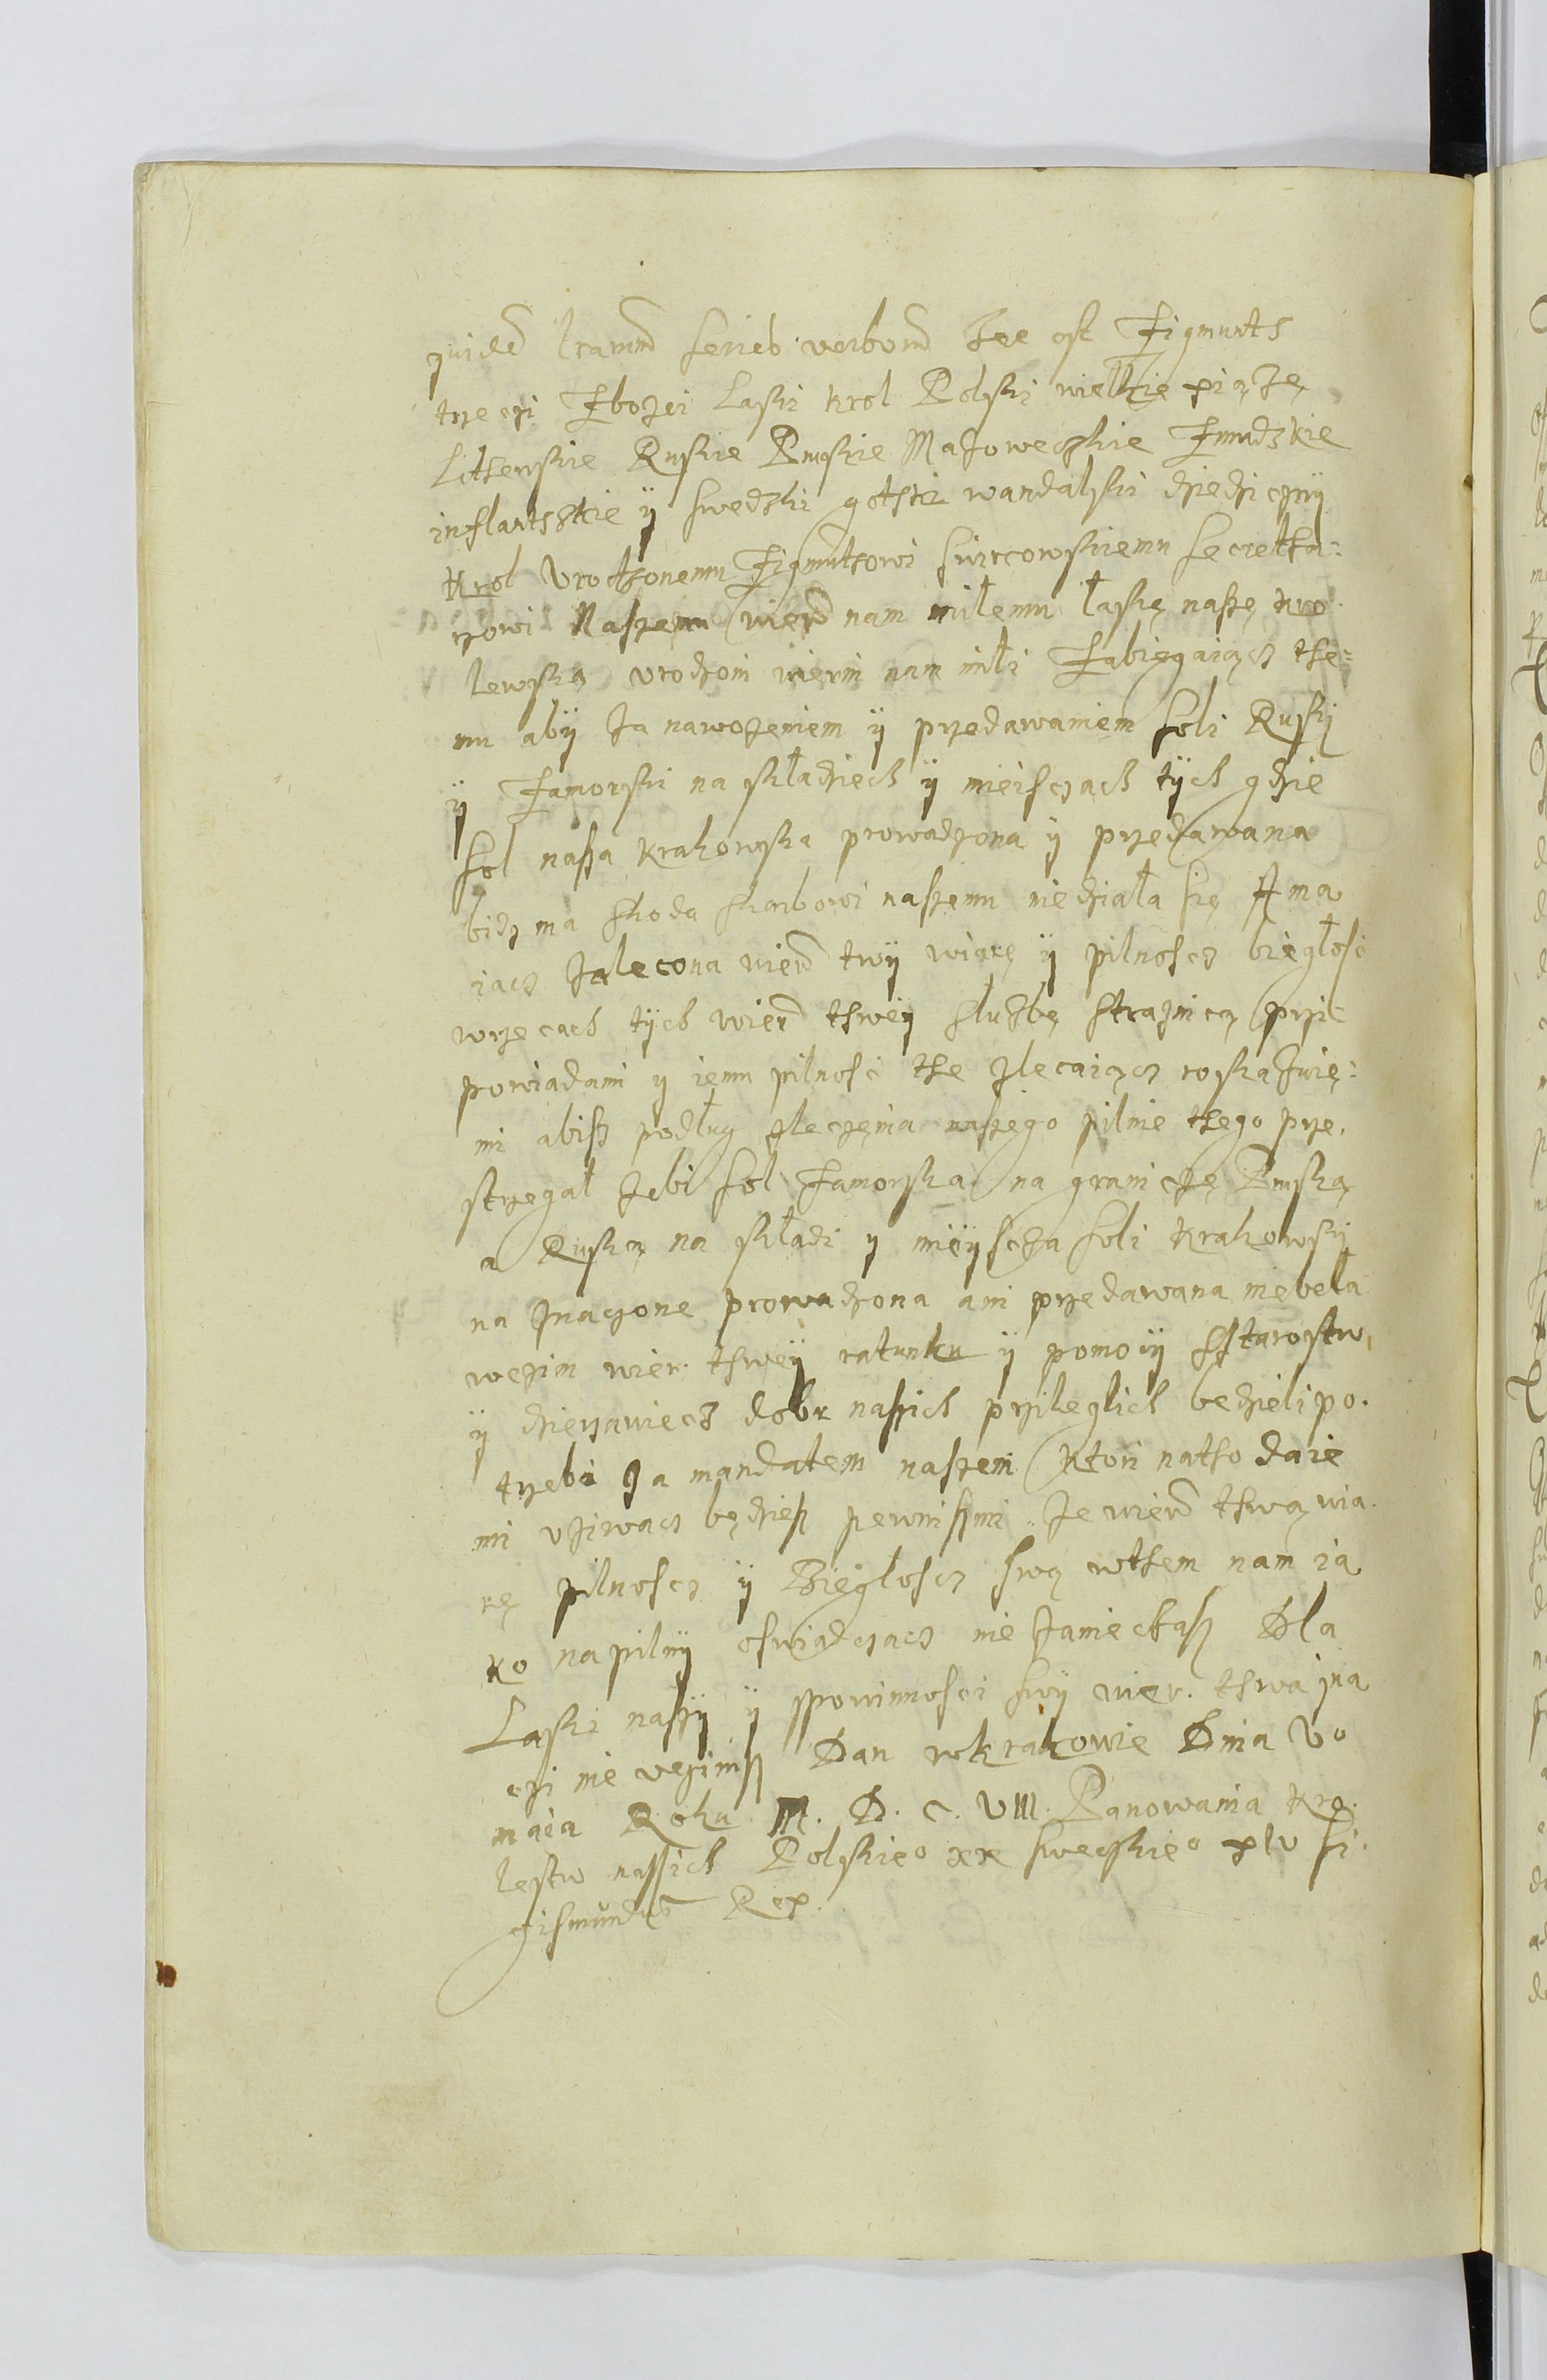 quidẽ lrarum̃ series verborũ Hec est Zigmunts
trzeczi Zbożei Laski krol Polski wielkie xiążę
Lithewskie Ruskie Pruskie Mazoweczkie Zmudzkie
inflantszkie ÿ swedzki gotski wandalski dziedzicznÿ
krol Vrothonemu Zigmuthowi swircowskiemu secretha=
rzowi Naszemu wierñ nam miłemu łaskę naszę kro
lewską vrodzoni wierni nam miłi Zabiegaiącz the=
mu abÿ za nawożeniem ÿ przedawaniem soli Ruskÿ
ÿ Zamorski na składziech ÿ mieiscach tÿch gdzie
sol nasza krakowska prowadzona ÿ przedawana
bidz ma skoda skarbowi naszemu niedziała się A ma
iacz zalecona wierñ twÿ wiarę ÿ pilnoscz biegłosć
wrzecach tÿch wierñ thwëÿ służbę straznicą przi=
powiadami y iemu pilnosć the zlecaiącz roskazuię=
mi abisz podług zleczęnia naszego pilnie thego prze.
strzegał żebi sol zamorska na graniczę Pruską
a Ruską na składi y miëÿscza soli krakowskÿ
na znaczone prowadzona ani przedawana niebeła
weżim wier. thwëÿ ratunku ÿ pomoiÿ Sstarostw
ÿ dzierzawiecz dobr naszich przileglich bedzieli po.
trzebi za mandatem naszem ktori natho daie
mi vżiwacz będziesz pewnismi że wierñ thwą wia.
rę pilnoscz ÿ Biegłoscz swą wthem nam ia
ko napilnÿ oswiadczacz nie zaniechasz Dla
Laski naszÿ ÿ powinnosci swÿ wier. thwa ina
czi nie vczinisz Dan wkrakowie Dnia Vo
maia Roku M. D. C. VIII. Panowania kro.
lestw naszich Polskieo xx sweczkieo xlv Si.
gismundus Rex